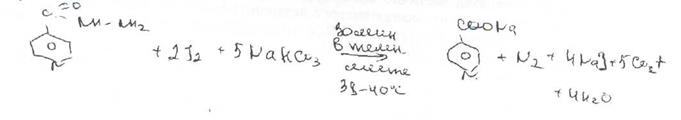 C=O
NH-NH₂
+ 2J₂ + 5NaHCO₃
30 мин
в темн
месте
38-40°C
COONa
N
N
+ N₂ + 4NaJ + 5CO₂ +
+ 4H₂O